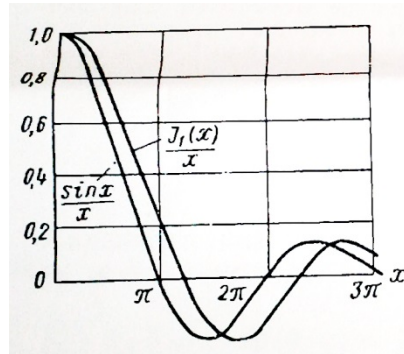 1,0
0,8
0,6
0,4
0,2
0
J₁(x)
x
sinx
x
π
2π
3π
x